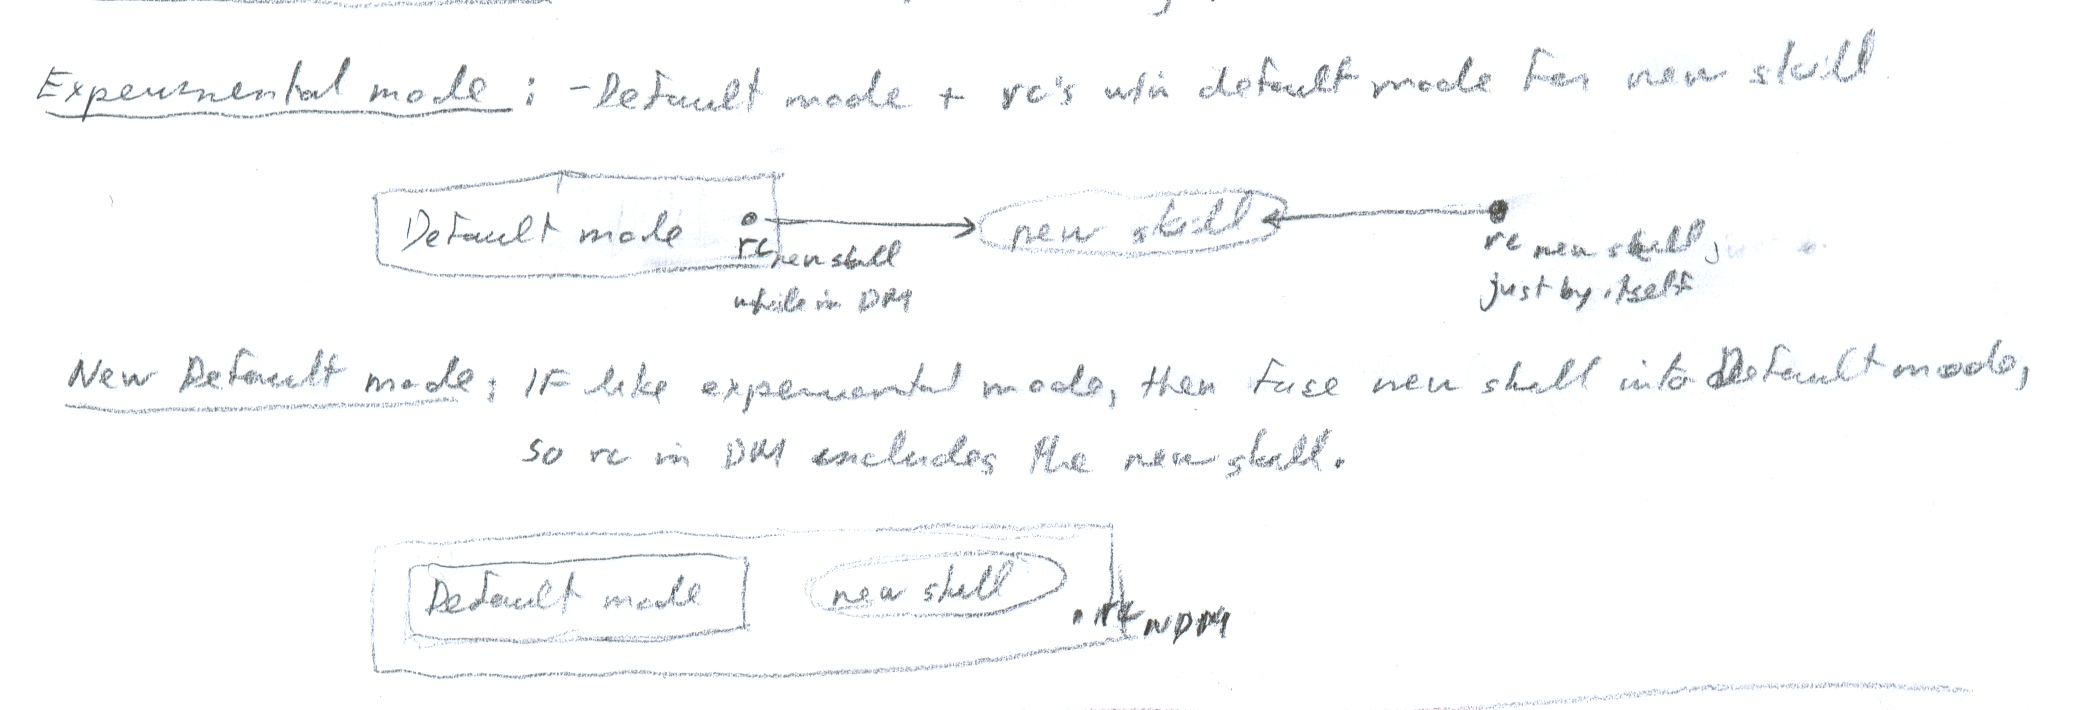 Experimental mode : - Default mode + rc's w/in default mode for new skill
Default mode
rc new skill
while in DM
new skill
rc new skill,
just by itself
New Default mode; If like experimental mode, then fuse new skill into Default mode,
so rc in DM includes the new skill.
Default mode
new skill
rc NDM